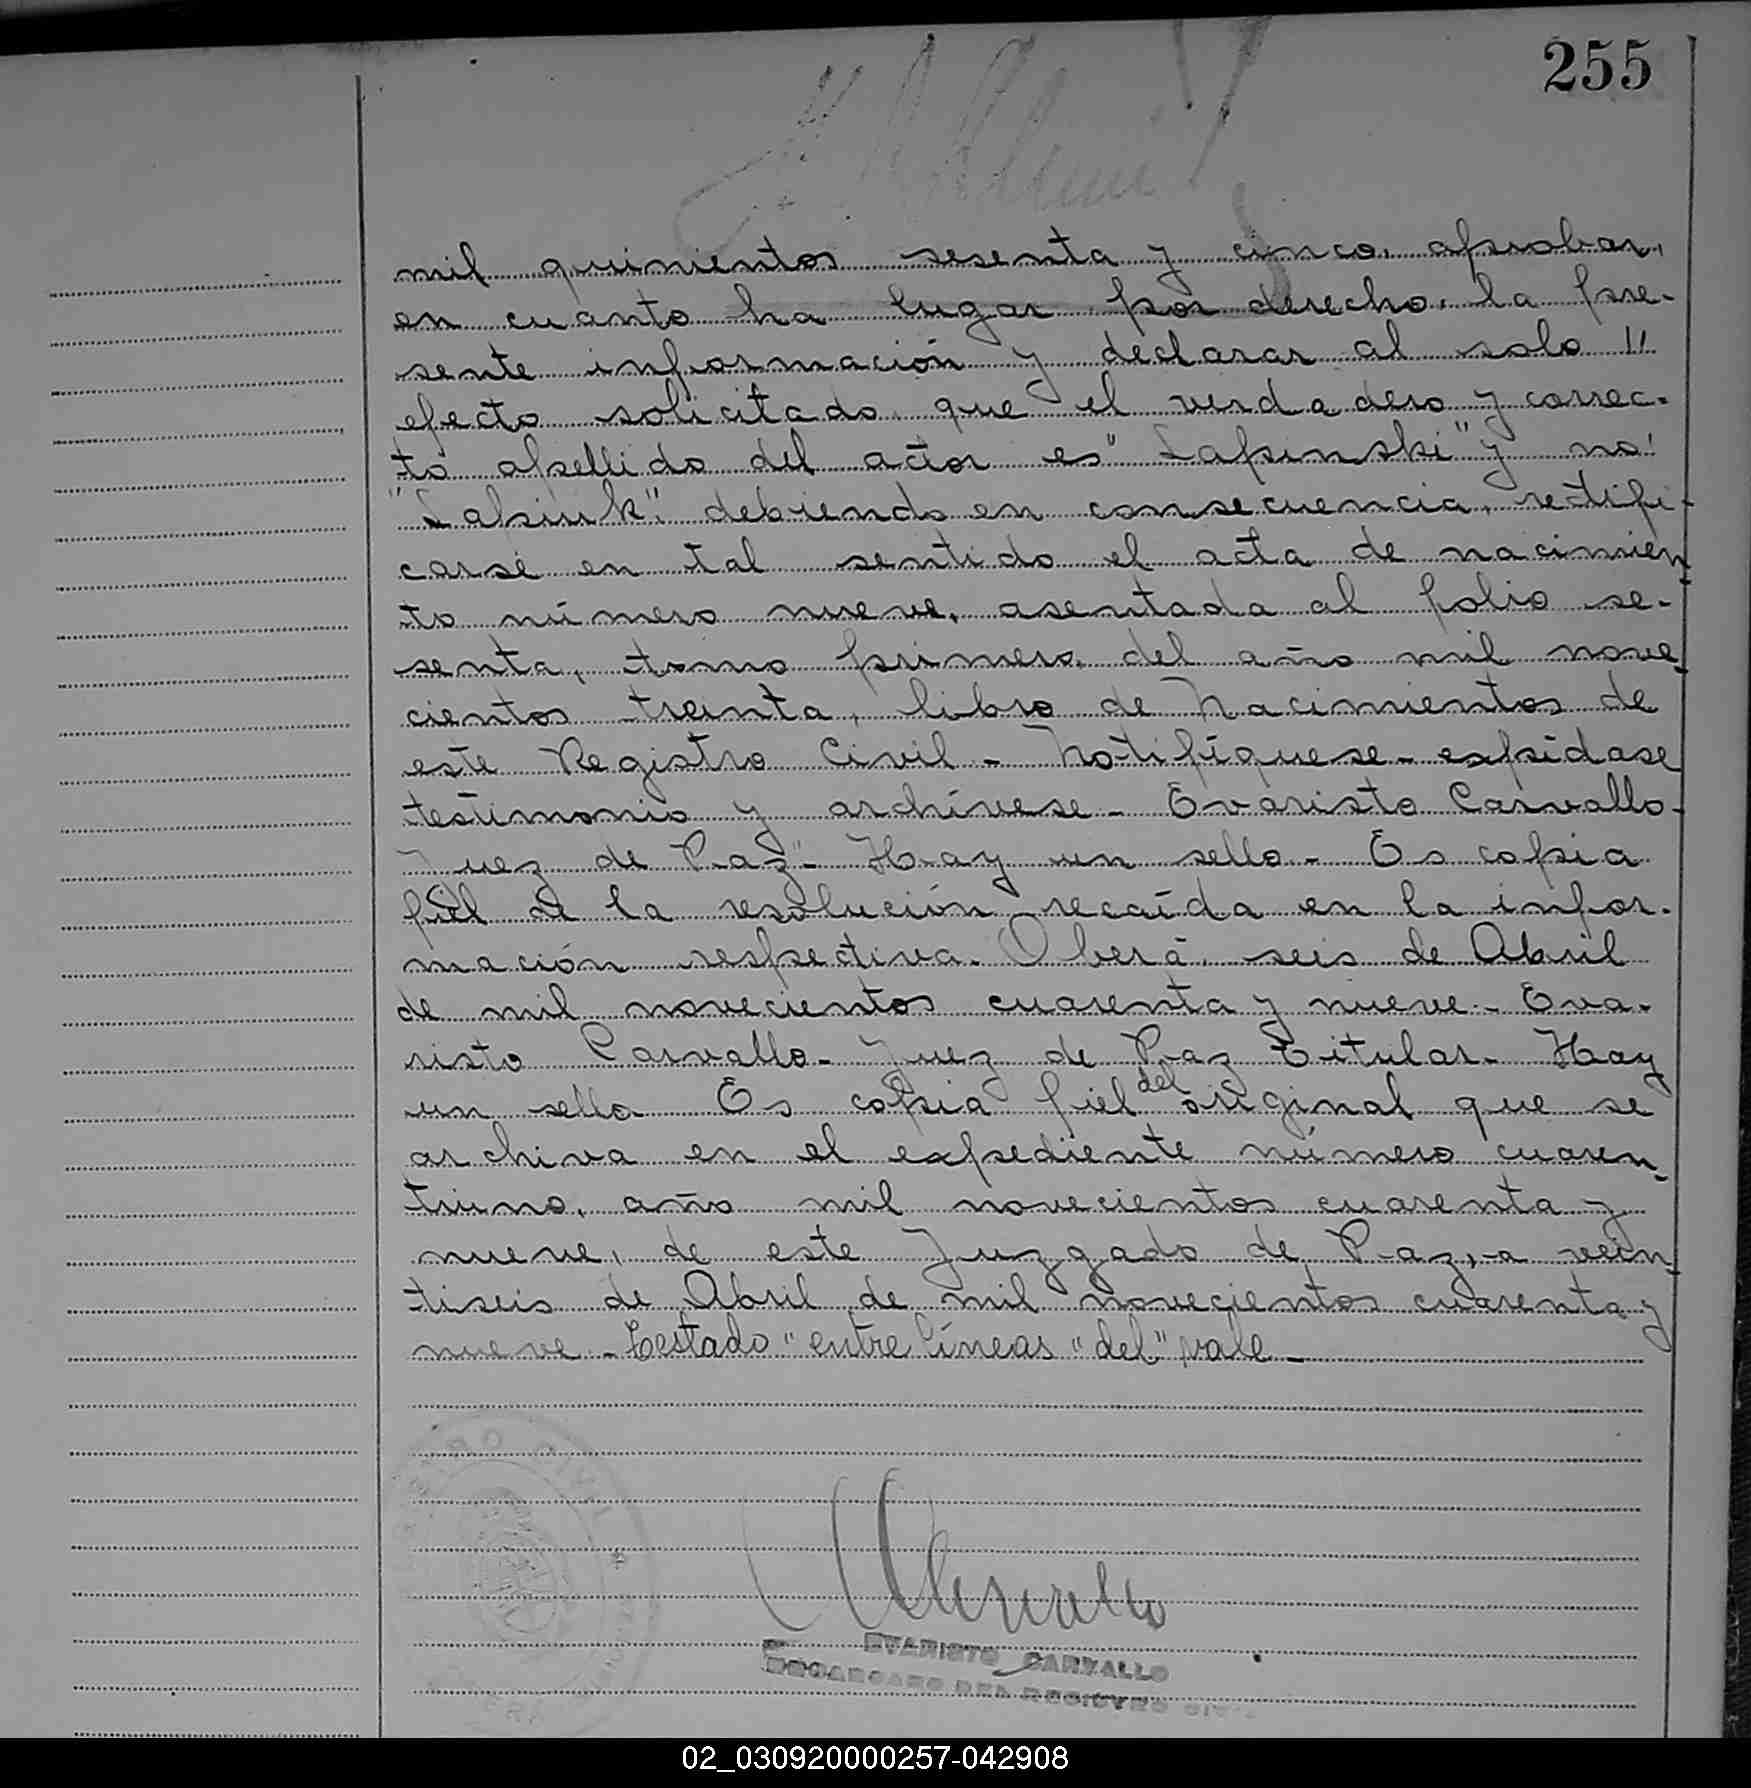 255
mil quinientos sesenta y cinco, aprobar,
en cuanto ha lugar por derecho, la pre-
sente información y declarar al solo "
efecto solicitado que el verdadero y correc-
to apellido del actor es "Lapinski" y no
"Lapiuk", debiendo en consecuencia, rectifi-
carse en tal sentido el acta de nacimien
to número nueve, asentada al folio se-
senta, tomo primero, del año mil nove-
cientos treinta, libro de Nacimientos de
este Registro Civil - Notifíquese - expídase
testimonio y archívese - Evaristo Carvallo -
Juez de Paz" - Hay un sello - Es copia
fiel de la resolución recaída en la infor-
mación respectiva. Oberá, seis de Abril
de mil novecientos cuarenta y nueve - Eva-
risto Carvallo - Juez de Paz Titular - Hay
un sello Es copia fiel del original que se
archiva en el expediente número cuaren-
tiuno, año mil novecientos cuarenta y
nueve, de este Juzgado de Paz, a vein-
tiseis de Abril de mil novecientos cuarenta y
nueve - Testado "entre líneas "del" vale -
EVARISTO CARVALLO
ENCARGADO DEL REGISTRO CIVIL
02_030920000257-042908